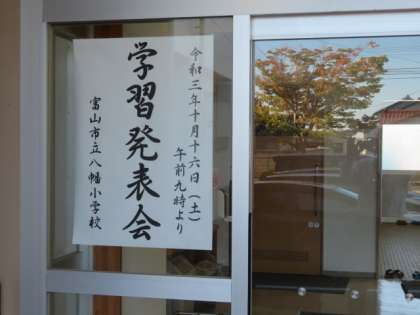 令和三年十月十六日(土)
午前九時より
学習発表会
富山市立八幡小学校